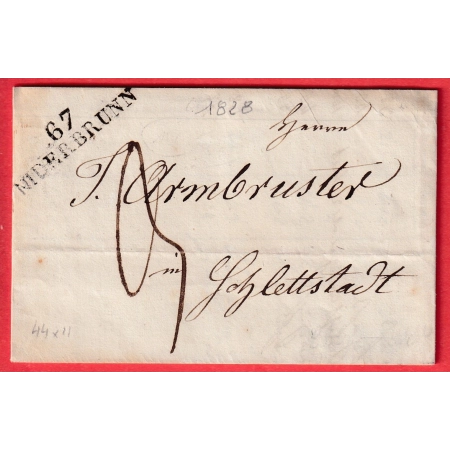 1828
67
NIDERBRUNN
Herrn
J. Armbruster
in Schlettstadt
44 x 11